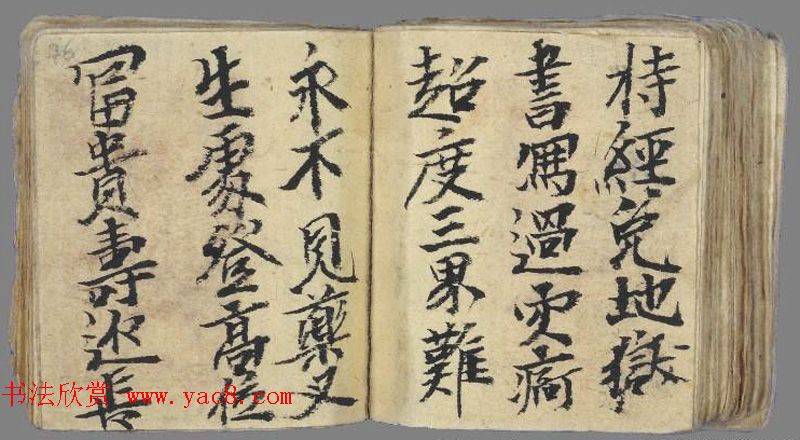 持經免地獄
書寫過灾痾
超度三界難
永不見藥叉
生處登高位
冨貴壽延長
76
书法欣赏 www.yac8.com